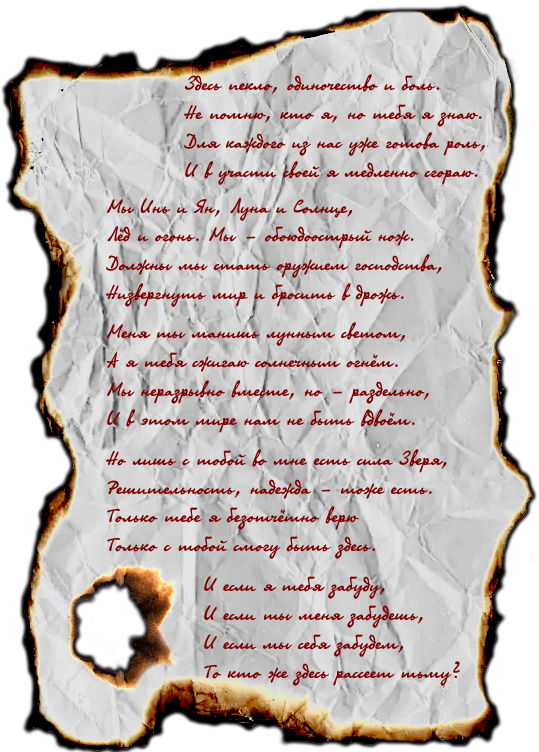 Здесь пекло, одиночество и боль.
Не помню, кто я, но тебя я знаю.
Для каждого из нас уже готова роль,
И в участи своей я медленно сгораю.
Мы Инь и Ян, Луна и Солнце,
Лёд и огонь. Мы – обоюдоострый нож.
Должны мы стать оружием господства,
Низвергнуть мир и бросить в дрожь.
Меня ты манишь лунным светом,
А я тебя сжигаю солнечным огнём.
Мы неразрывно вместе, но – раздельно,
И в этом мире нам не быть вдвоём.
Но лишь с тобой во мне есть сила Зверя,
Решительность, надежда – тоже есть.
Только тебе я безотчётно верю
Только с тобой смогу быть здесь.
И если я тебя забуду,
И если ты меня забудешь,
И если мы себя забудем,
То кто же здесь рассеет тьму?